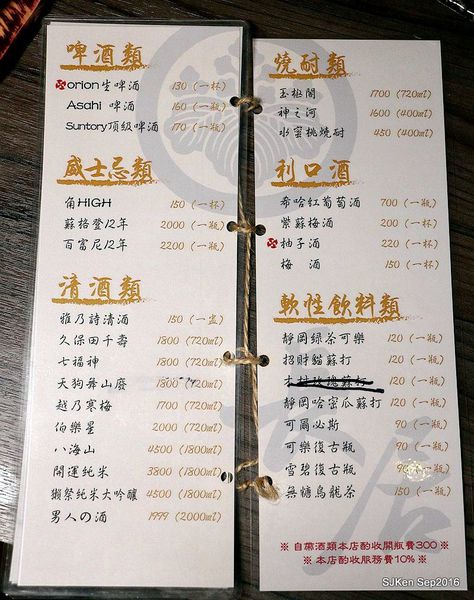 啤酒類
orion生啤酒 130 (一杯)
Asahi 啤酒 160 (一瓶)
Suntory頂級啤酒 170 (一瓶)
威士忌類
角HIGH 150 (一杯)
蘇格登12年 2000 (一瓶)
百富尼12年 2200 (一瓶)
清酒類
雅乃詩清酒 150 (一壺)
久保田千壽 1800 (720ml)
七福神 1800 (720ml)
天狗舞山廢 1800 (720ml)
越乃寒梅 1700 (720ml)
伯樂星 2000 (720ml)
八海山 4500 (1800ml)
開運純米 3800 (1800ml)
獺祭純米大吟釀 4500 (1800ml)
男人の酒 1999 (2000ml)
燒酎類
玉極閣 1700 (720ml)
神之河 1600 (400ml)
水蜜桃燒酎 450 (400ml)
利口酒
希哈紅葡萄酒 700 (一瓶)
紫蘇梅酒 200 (一杯)
柚子酒 220 (一杯)
梅 酒 150 (一杯)
軟性飲料類
靜岡綠茶可樂 120 (一瓶)
招財貓蘇打 120 (一瓶)
120 (一瓶)
靜岡哈密瓜蘇打 120 (一瓶)
可爾必斯 90 (一瓶)
可樂復古瓶 90 (一瓶)
雪碧復古瓶 90 (一瓶)
無糖烏龍茶 150 (一瓶)
※ 自帶酒類本店酌收開瓶費300 ※
※ 本店酌收服務費10% ※
SJKen Sep2016